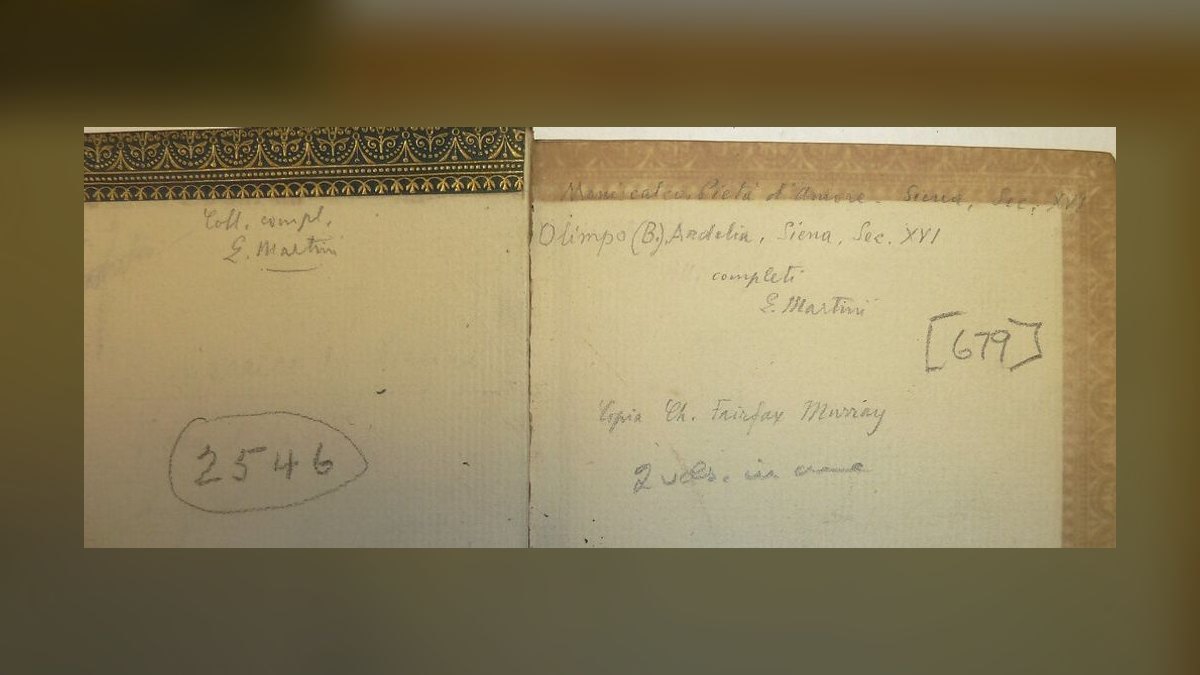 Coll. compl.
G. Martini
2546
Maniscalco. Pietà d'Amore. Siena, Sec. XVI
Olimpo (B.) Ardelia, Siena, Sec. XVI
completi
G. Martini
[679]
Copia Ch. Fairfax Murray
2 vols. in one